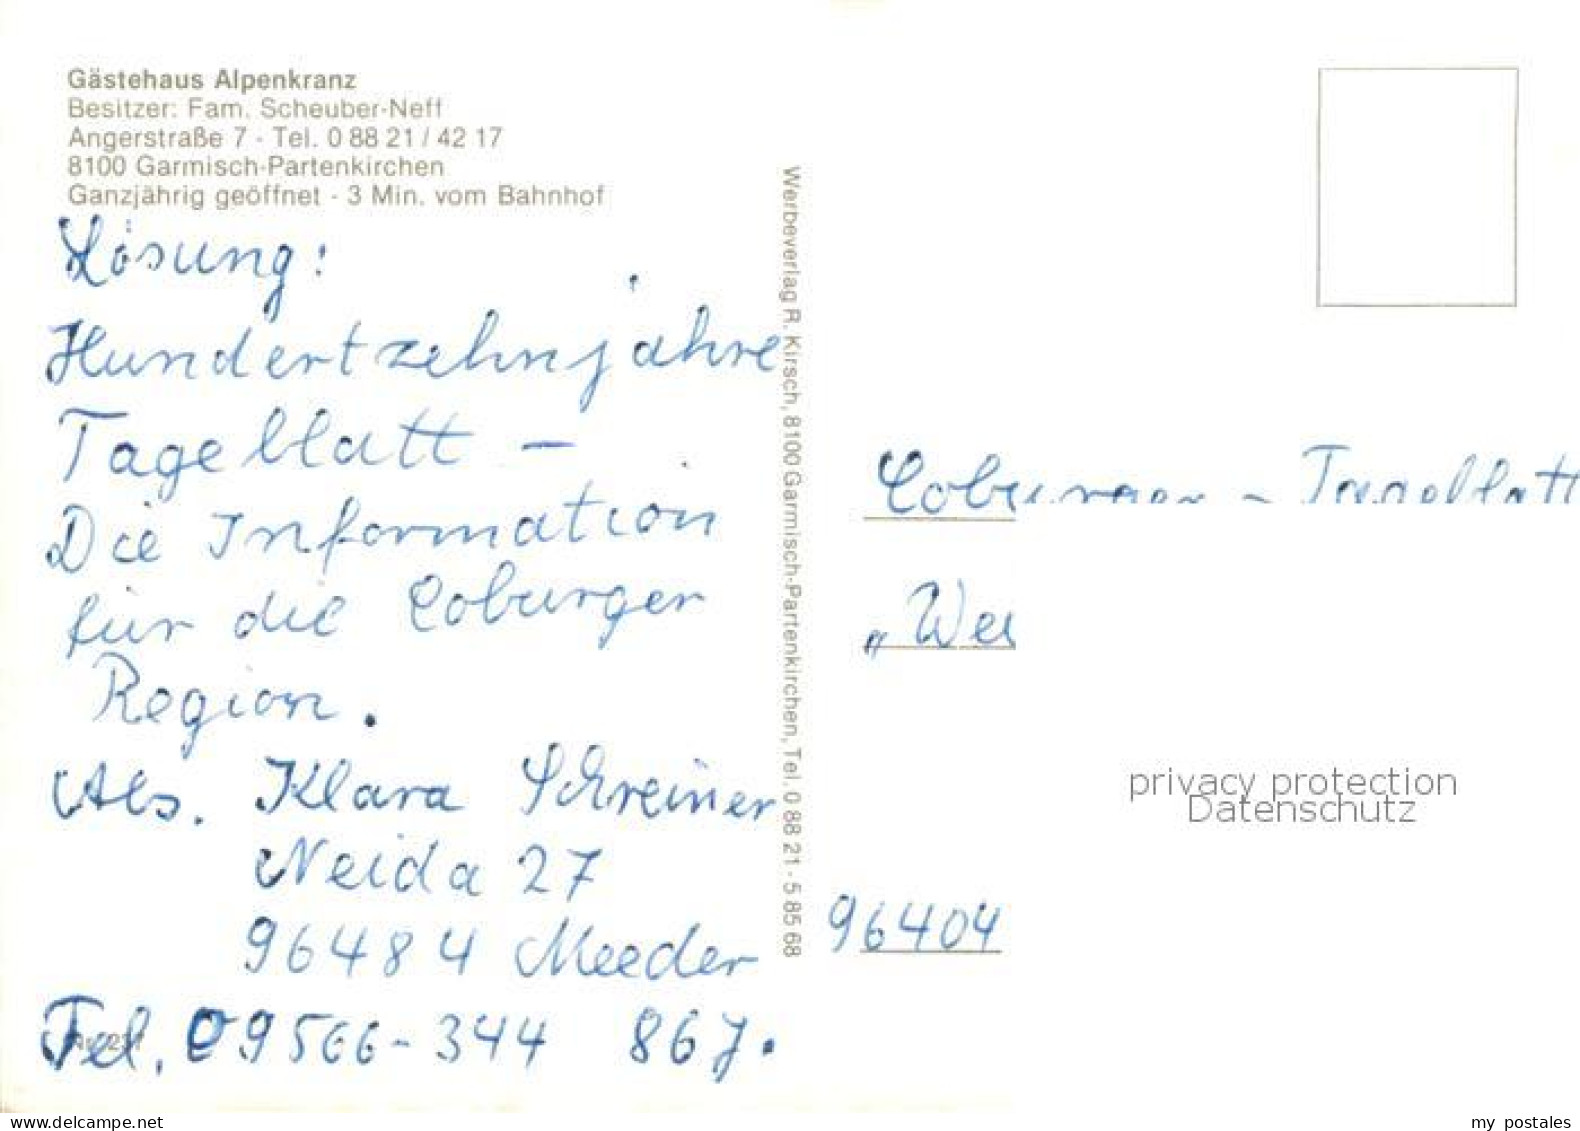 Gästehaus Alpenkranz
Besitzer: Fam. Scheuber-Neff
Angerstraße 7 - Tel. 0 88 21 / 42 17
8100 Garmisch-Partenkirchen
Ganzjährig geöffnet - 3 Min. vom Bahnhof
Lösung:
Hundertzehnjahre
Tageblatt -
Die Information
für die Coburger
Region.
Abs. Klara Schreiner
Neida 27
96484 Meeder
Tel. 09566-344 867.
Werbeverlag R. Kirsch, 8100 Garmisch-Partenkirchen, Tel. 0 88 21 - 5 85 68
Coburger - Tageblatt
96404
privacy protection
Datenschutz
www.delcampe.net
my_postales